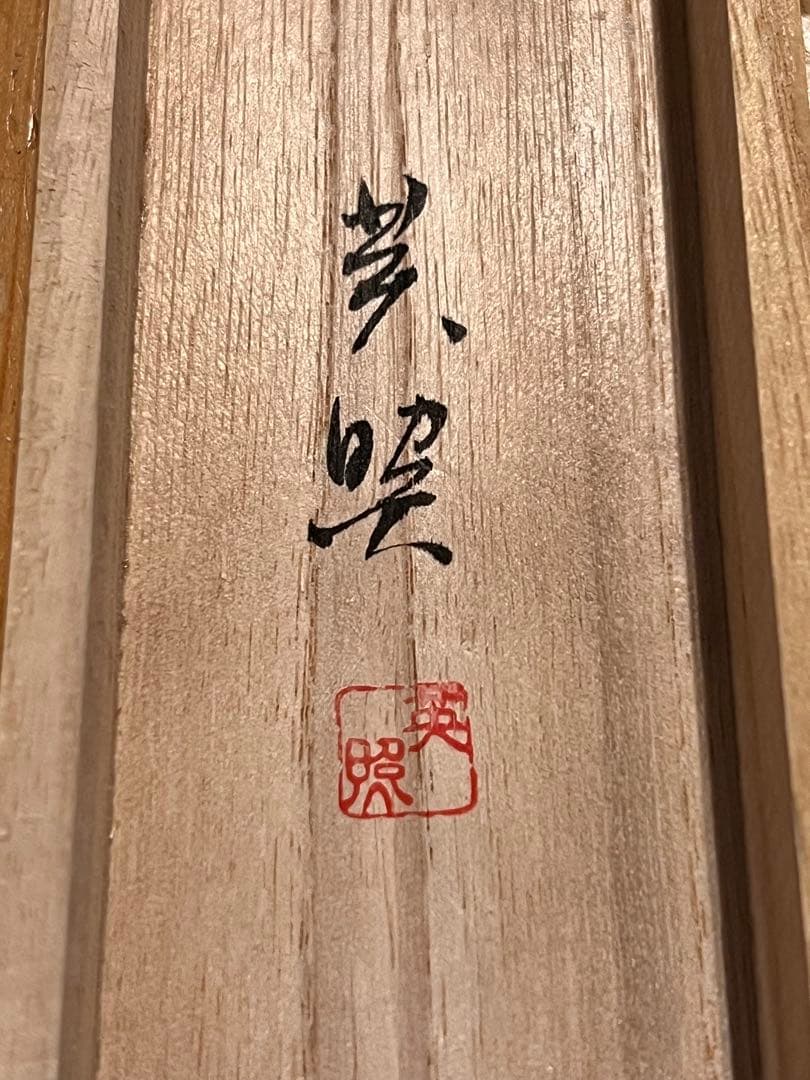 英
照
英
照